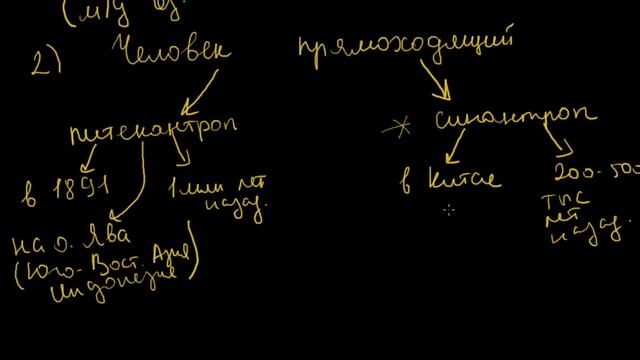 (м/у
2) Человек прямоходящий
питекантроп
* синантроп
в 1891
1 млн лет
назад.
на о. Ява
(Юго-Вост. Азия
Индонезия)
в Китае
200-500
тыс
лет
назад.